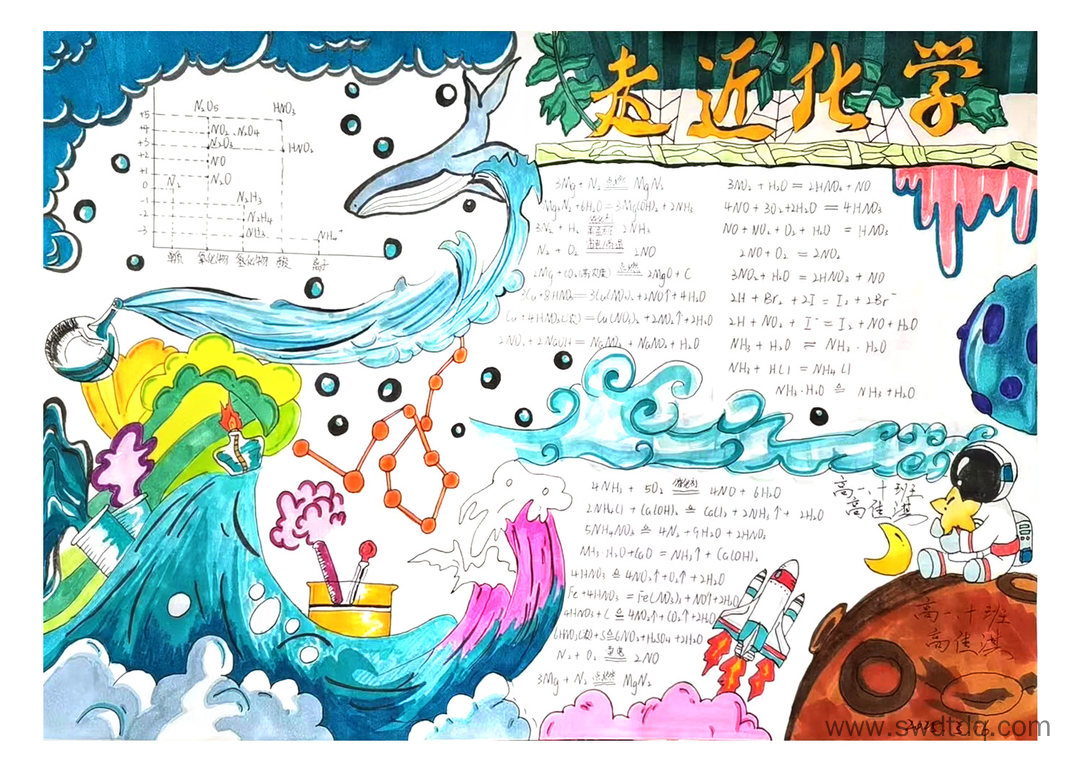 走近化学
N₂O₅ HNO₃
+5
+4 NO₂ N₂O₄
+3 N₂O₃ HNO₂
+2 NO
+1 N₂O
0 N₂
-1 N₂H₃
-2 N₂H₄
-3 NH₃ NH₄⁺
单质 氧化物 氢化物 酸 离子
3Mg + N₂ 点燃 MgN₂
Mg₃N₂ + 6H₂O = 3Mg(OH)₂ + 2NH₃
3N₂ + H₂ 2NH₃
N₂ + O₂ 2NO
2Mg + CO₂ 点燃 2MgO + C
3Cu + 8HNO₃ = 3Cu(NO₃)₂ + 2NO↑ + 4H₂O
Cu + 4HNO₃(浓) = Cu(NO₃)₂ + 2NO₂↑ + 2H₂O
2NO₂ + 2NaOH = NaNO₃ + NaNO₂ + H₂O
3NO₂ + H₂O = 2HNO₃ + NO
4NO + 3O₂ + 2H₂O = 4HNO₃
NO + NO₂ + O₂ + H₂O = HNO₃
2NO + O₂ = 2NO₂
3NO₂ + H₂O = 2HNO₃ + NO
2H + Br₂ + 2I = I₂ + 2Br⁻
2H + NO₂ + I⁻ = I₂ + NO + H₂O
NH₃ + H₂O ⇌ NH₃·H₂O
NH₃ + HCl = NH₄Cl
NH₃·H₂O ≜ NH₃ + H₂O
4NH₃ + 5O₂ 催化剂 4NO + 6H₂O
2NH₄Cl + Ca(OH)₂ ≜ CaCl₂ + 2NH₃↑ + 2H₂O
5NH₄NO₃ ≜ 4N₂ + 9H₂O + 2HNO₃
NH₃·H₂O + CaO = NH₃↑ + Ca(OH)₂
4HNO₃ ≜ 4NO₂↑ + O₂↑ + 2H₂O
Fe + 4HNO₃ = Fe(NO₃)₃ + NO↑ + 2H₂O
4HNO₃ + C ≜ 4NO₂↑ + CO₂↑ + 2H₂O
6HNO₃(浓) + S ≜ 6NO₂ + H₂SO₄ + 2H₂O
N₂ + O₂ 放电 2NO
3Mg + N₂ 点燃 MgN₂
高一十班
高佳淇
高一十班
高佳淇
www.swdtdq.com